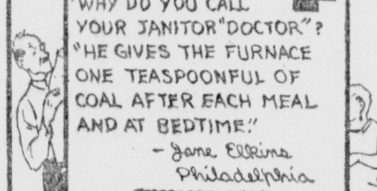 "WHY DO YOU CALL
YOUR JANITOR "DOCTOR"?
"HE GIVES THE FURNACE
ONE TEASPOONFUL OF
COAL AFTER EACH MEAL
AND AT BEDTIME."
- Jane Elkins
Philadelphia